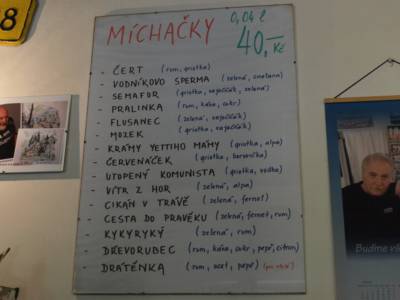 8
MÍCHAČKY 0,04 l
40,- Kč
- ČERT (rum, griotka)
- VODNÍKOVO SPERMA (zelená, smetana)
- SEMAFOR (griotka, vaječňák, zelená)
- PRALINKA (rum, kakao, cukr)
- FLUSANEC (zelená, vaječňák)
- MOZEK (griotka, vaječňák)
- KRÁMY YETTIHO MÁMY (griotka, alpa)
- ČERVENÁČEK (griotka, borovička)
- UTOPENÝ KOMUNISTA (griotka, vodka)
- VÍTR Z HOR (zelená, alpa)
- CIKÁN V TRÁVĚ (zelená, fernet)
- CESTA DO PRAVĚKU (zelená, fernet, rum)
- KYKYRYKÝ (zelená, rum)
- DŘEVORUBEC (rum, káva, cukr, pepř, citron)
- DRATĚNKA (rum, ocet, pepř)
Buďme